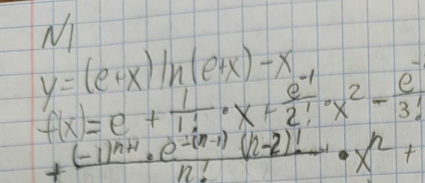 N1
y = (e+x) ln(e+x) - x
f(x) = e + 1/1! · x + e^-1/2! · x^2 - e^-/3!
+ (-1)^n+1 · e^-(n-1) (n-2)!/n! · x^n +